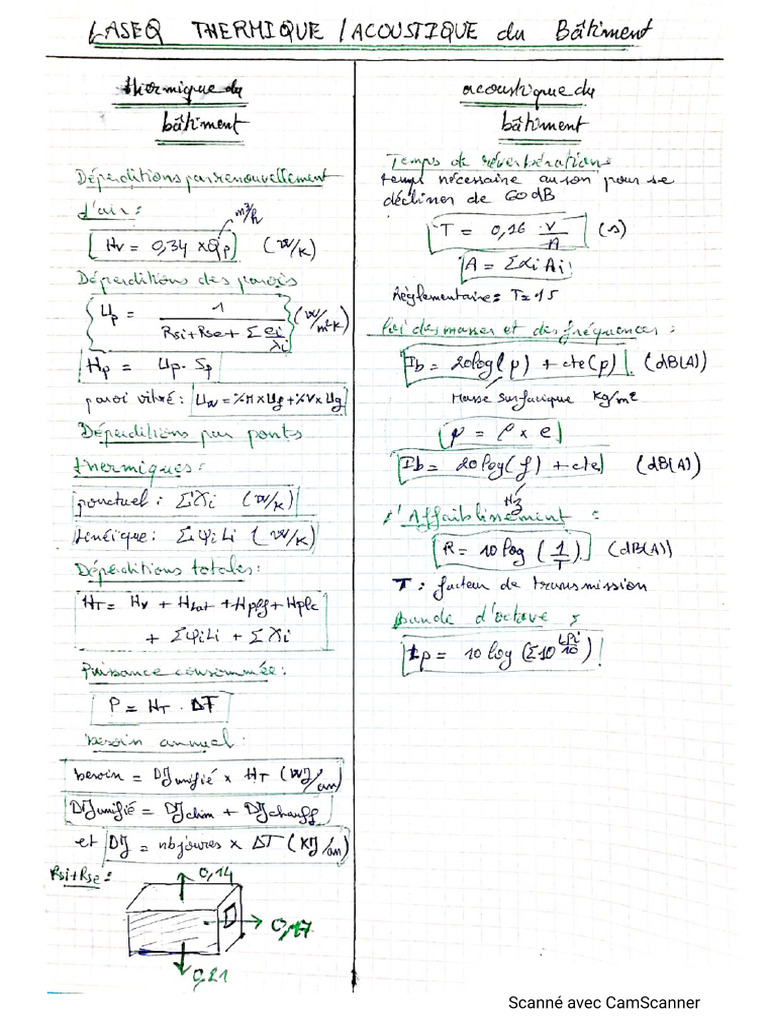 LASEQ THERMIQUE / ACOUSTIQUE du Bâtiment
thermique du
bâtiment
Déperditions par renouvellement
d'air :
m³/h
Hv = 0,34 × Qp (W/K)
Déperditions des parois
Up = 1 / (Rsi + Rse + Σ ei/λi) (W/m²K)
Hp = Up . Sp
paroi vitré : Uw = %M × Uf + %V × Ug
Déperditions par ponts
thermiques :
ponctuel : Σ χi (W/K)
linéique : Σ ψi Li (W/K)
Déperditions totales :
HT = Hv + Hlat + Hplf + Hplc
+ Σ ψi Li + Σ χi
Puissance consommée :
P = HT . ΔT
besoin annuel :
besoin = DJunifié × HT (WJ/an)
DJunifié = DJclim + DJchauff
et DJ = nbjoures × ΔT (KJ/an)
Rsi + Rse :
0,14
0,17
0,21
acoustique du
bâtiment
Temps de réverbération
temps nécessaire au son pour se
décliner de 60 dB
T = 0,16 . V/A (s)
A = Σ αi Ai
Règlementaire : T = 1 s
Loi des masses et des fréquences :
Ib = 20 log(p) + cte(p) (dB(A))
Masse surfacique Kg/m²
p = ρ × e
Ib = 20 log(f) + cte (dB(A))
Hz
L'Affaiblissement :
R = 10 log (1/T) (dB(A))
T : facteur de transmission
Bande d'octave :
Lp = 10 log (Σ 10^(Lpi/10))
Scanné avec CamScanner